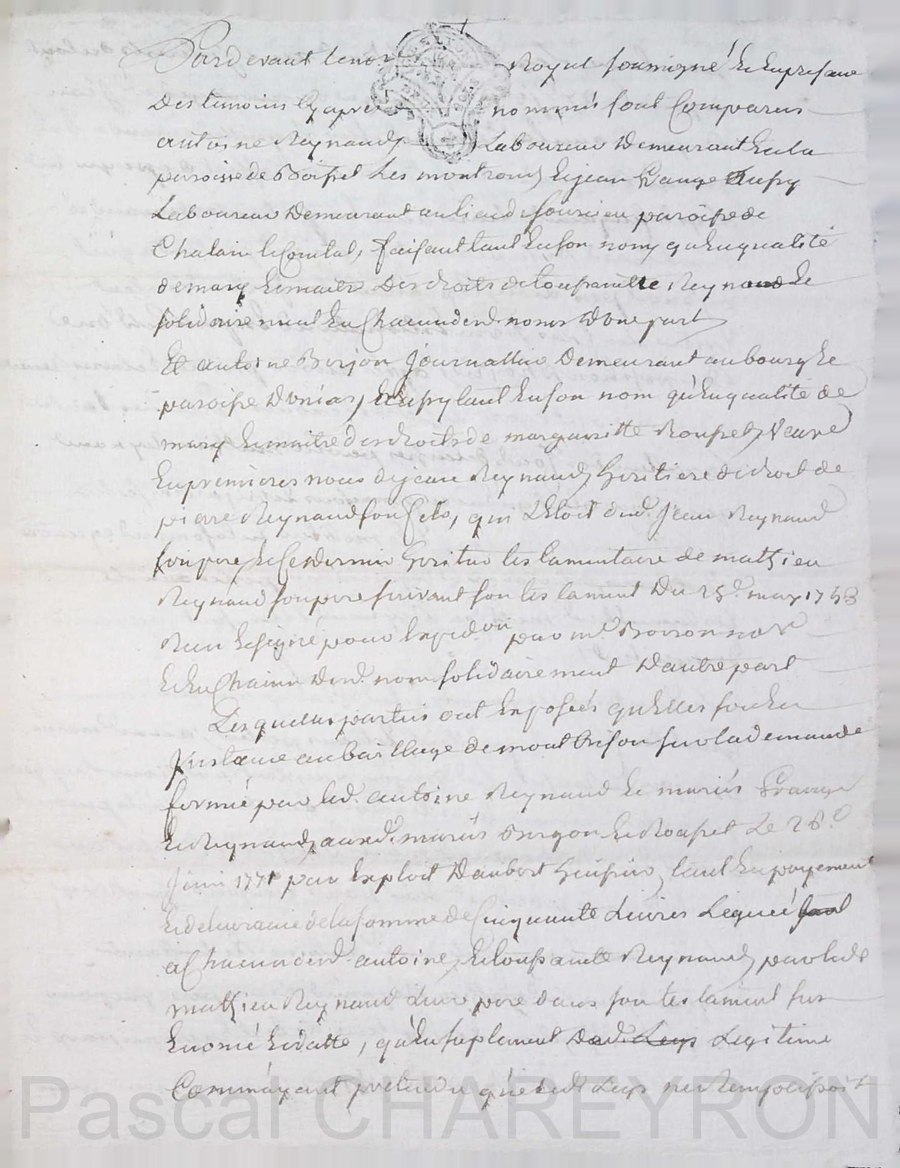 Pardevant le no Royal soussigné et en presance
des temoins cy apres nommés sont comparus
antoine Reynaud Laboureur demeurant en la
paroisse de Boisset Les montrond, et jean Grange aussy
Laboureur demeurant au lieu de paroisse de
Chalain le Comtal, faisant tant en son nom qu'en qualité
de mary et maitre des droits de Reynaud et
solidairement en Chacun desd. noms d'une part
Et antoine Berjon journallier demeurant au bourg et
paroisse d'unias, aussy tant en son nom qu'en qualité de
mary et maitre des droits de margueritte Rousset, veuve
en premieres noces de jean Reynaud, heritiere de droit de
pierre Reynaud son fils, qui l'etoit dud. jean Reynaud
son pere, et ce dernier heritier testamentaire de mathieu
Reynaud son pere suivant son testament du 25e. may 1758
Reçu et signé pour expedion par me. nore
et en Chacun desd. noms solidairement d'autre part
Lesquelles parties ont exposées qu'elles sont en
instance au bailliage de montbrison sur la demande
formée par led. antoine Reynaud et mariés Grange
et Reynaud, auxd. mariés et Rousset le 28e.
juin 1771 par exploit d'aubert huissier, tant en payement
et delivrance de la somme de Cinquante Livres Legué
a Chacun desd. antoine, et Reynaud, par led.
mathieu Reynaud Leur pere dans son testament sus
enoncé et datté, qu'en suplement Legitime
Comme ayant pretendu que led. Legs
Pascal CHAREYRON